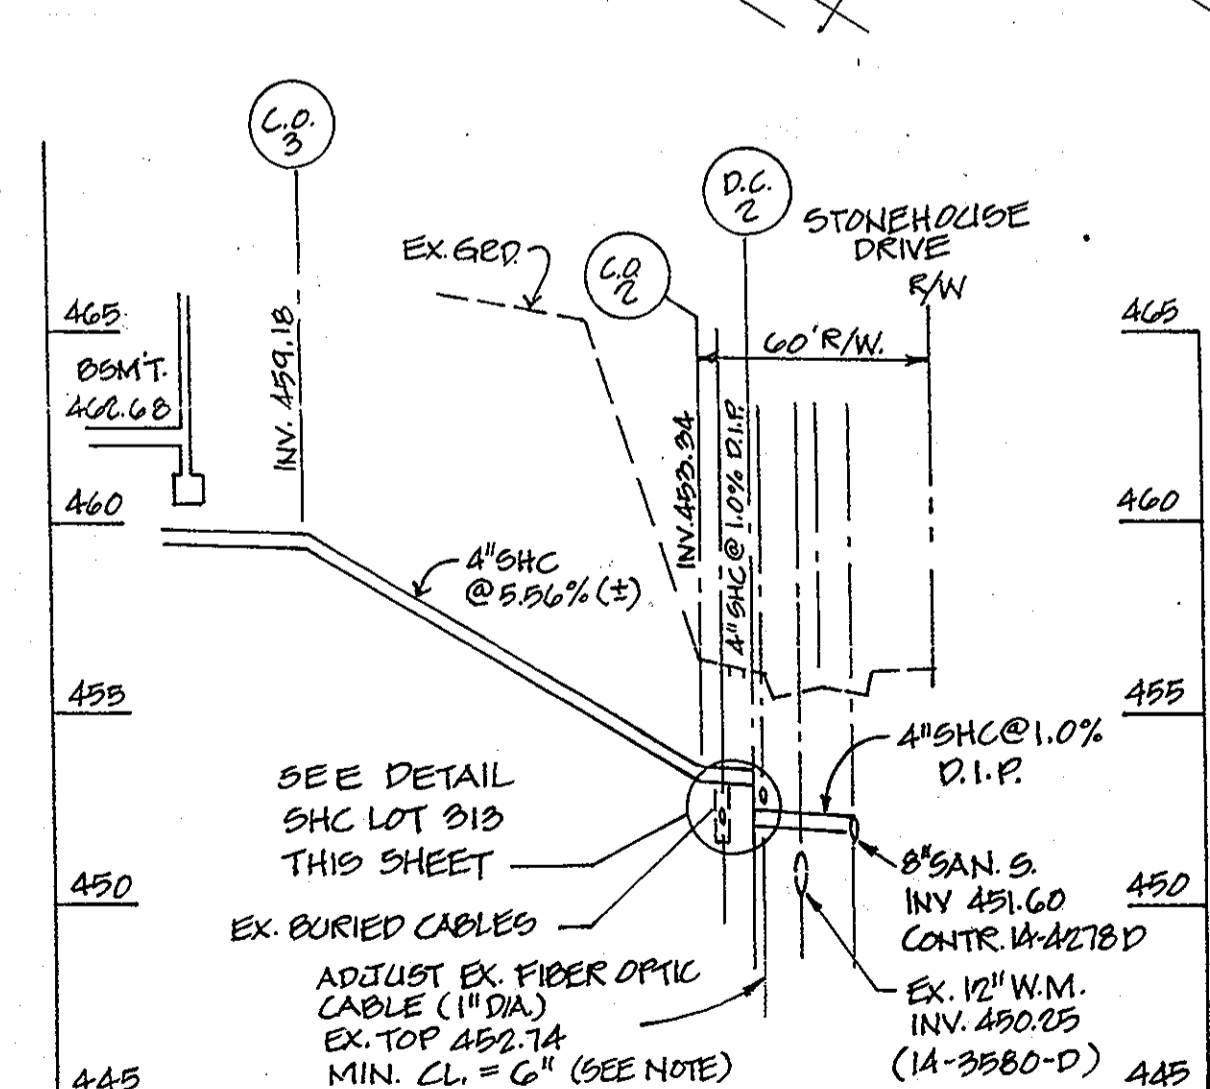 C.O.
3
D.C.
2
STONEHOUSE
DRIVE
R/W
EX. GRD.
C.O.
2
465
465
60' R/W.
BSM'T.
462.68
INV. 459.18
INV. 453.34
4" SHC @ 1.0% D.I.P.
460
460
4" SHC
@ 5.56% (±)
455
455
4" SHC @ 1.0%
D.I.P.
SEE DETAIL
SHC LOT 313
THIS SHEET
8" SAN. S.
INV 451.60
CONTR. 14-4278 D
450
450
EX. BURIED CABLES
ADJUST EX. FIBER OPTIC
CABLE (1" DIA.)
EX. TOP 452.74
MIN. CL. = 6" (SEE NOTE)
EX. 12" W.M.
INV. 450.25
(14-3580-D)
445
445